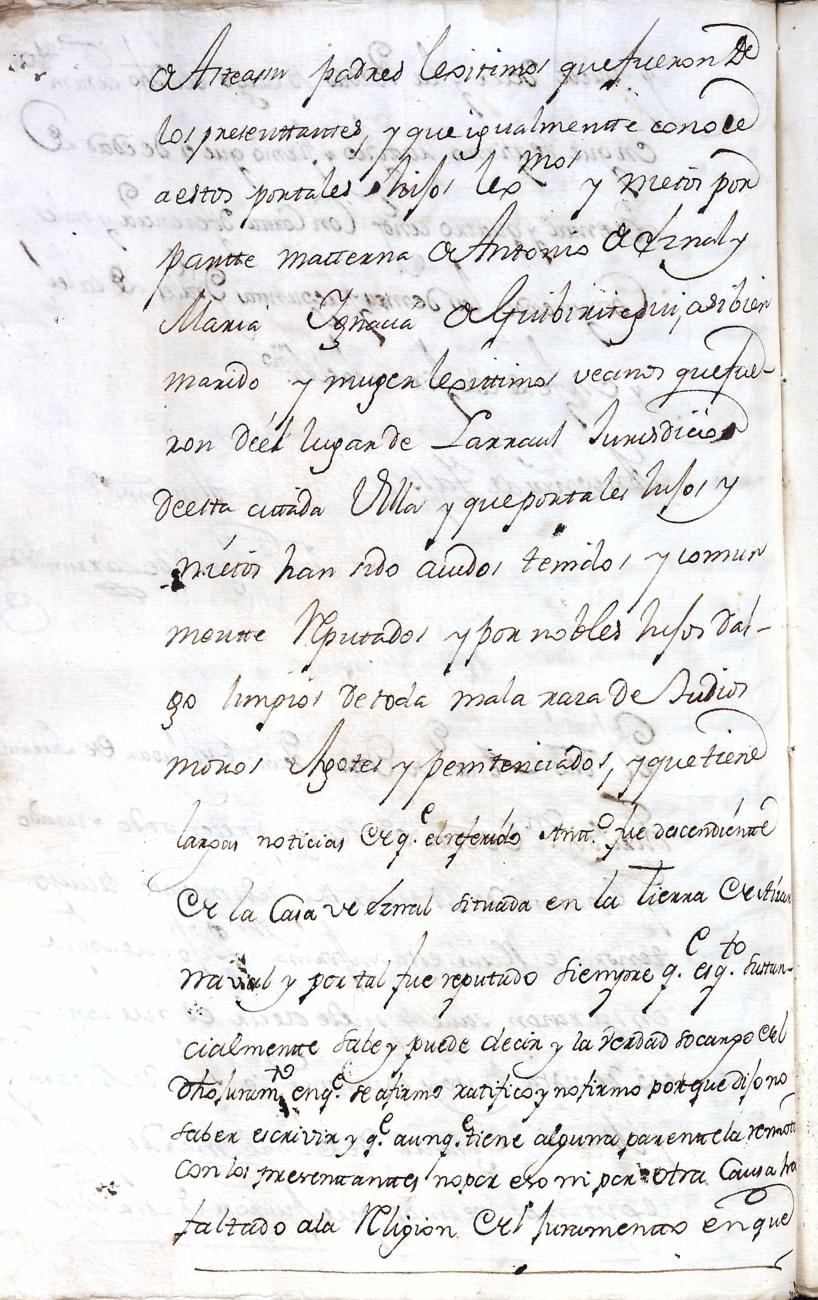 de Asteasu padres lexitimos que fueron de
los presenttantes, y que igualmentte conoce
a estos por tales hijos lexmos y nietos por
partte matterna de Antonio de Eznal y
Maria Ygnacia de Guibiritegui, asi bien
marido y muger lexittimos vecinos que fue-
ron deel lugar de Larraul Jurisdicion
de esta cittada Villa y que por tales hijos y
niétos han sido auidos tenidos y comun
mentte Rputados y por nobles hijos dal-
go limpios de toda mala raza de Judios
moros Agotes y penitenciados, y que tiene
largas noticias de q.e el referido Antt.o fue descendientte
de la Casa de Eznal situada en la tierra de
y por tal fue reputado siempre q.e es q.to sustan-
cialmentte sabe y puede decir y la verdad so cargo del
dho juramto en q.e se afirmo ratifico y no firmo porque dijo no
saber escrivir y q.e aunq.e tiene alguna parenttela remota
con los presenttanttes no por eso ni por otra Causa ha
faltado a la Rligion del Juramentto en que